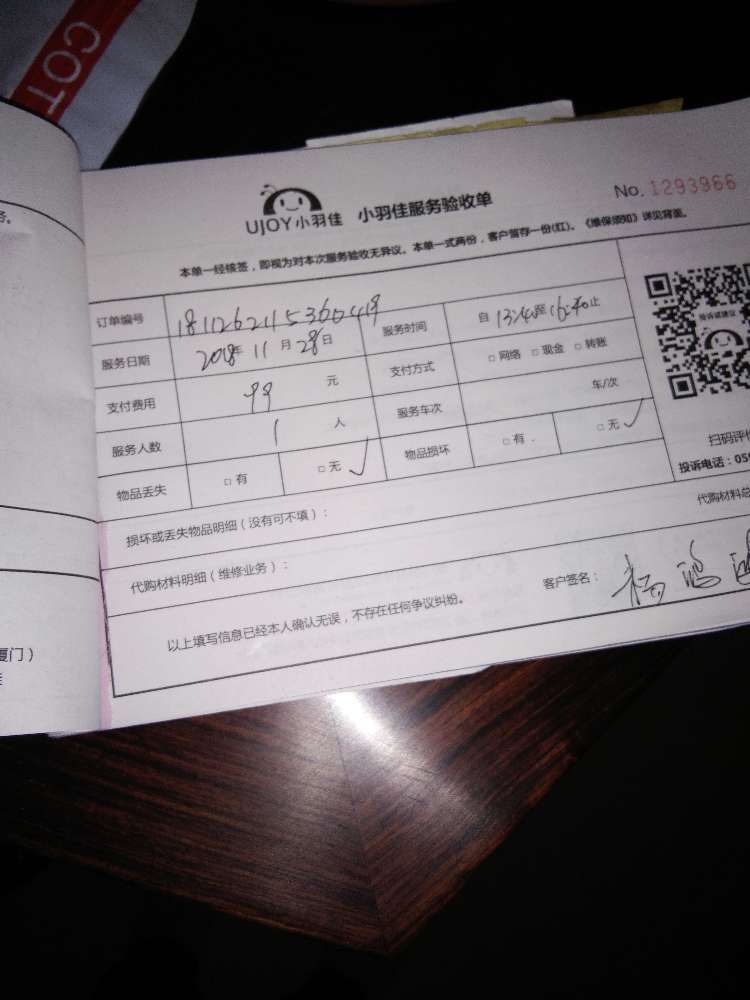 COT
务。
UJOY小羽佳 小羽佳服务验收单 No. 1293966
本单一经核签,即视为对本次服务验收无异议。本单一式两份,客户留存一份(红)。《维保须知》详见背面。
订单编号 服务时间 自 13:40至16:40止
服务日期 2018年 11 月 28日 支付方式 □ 网络 □ 现金 □ 转账
支付费用 99 元 服务车次 车/次
服务人数 1 人 物品损坏 □ 有 □ 无 ✓
物品丢失 □ 有 □ 无 ✓
投诉或建议
扫码评价
投诉电话:05
损坏或丢失物品明细(没有可不填):
代购材料明细(维修业务): 代购材料总
以上填写信息已经本人确认无误,不存在任何争议纠纷。 客户签名: 杨鸿
厦门)